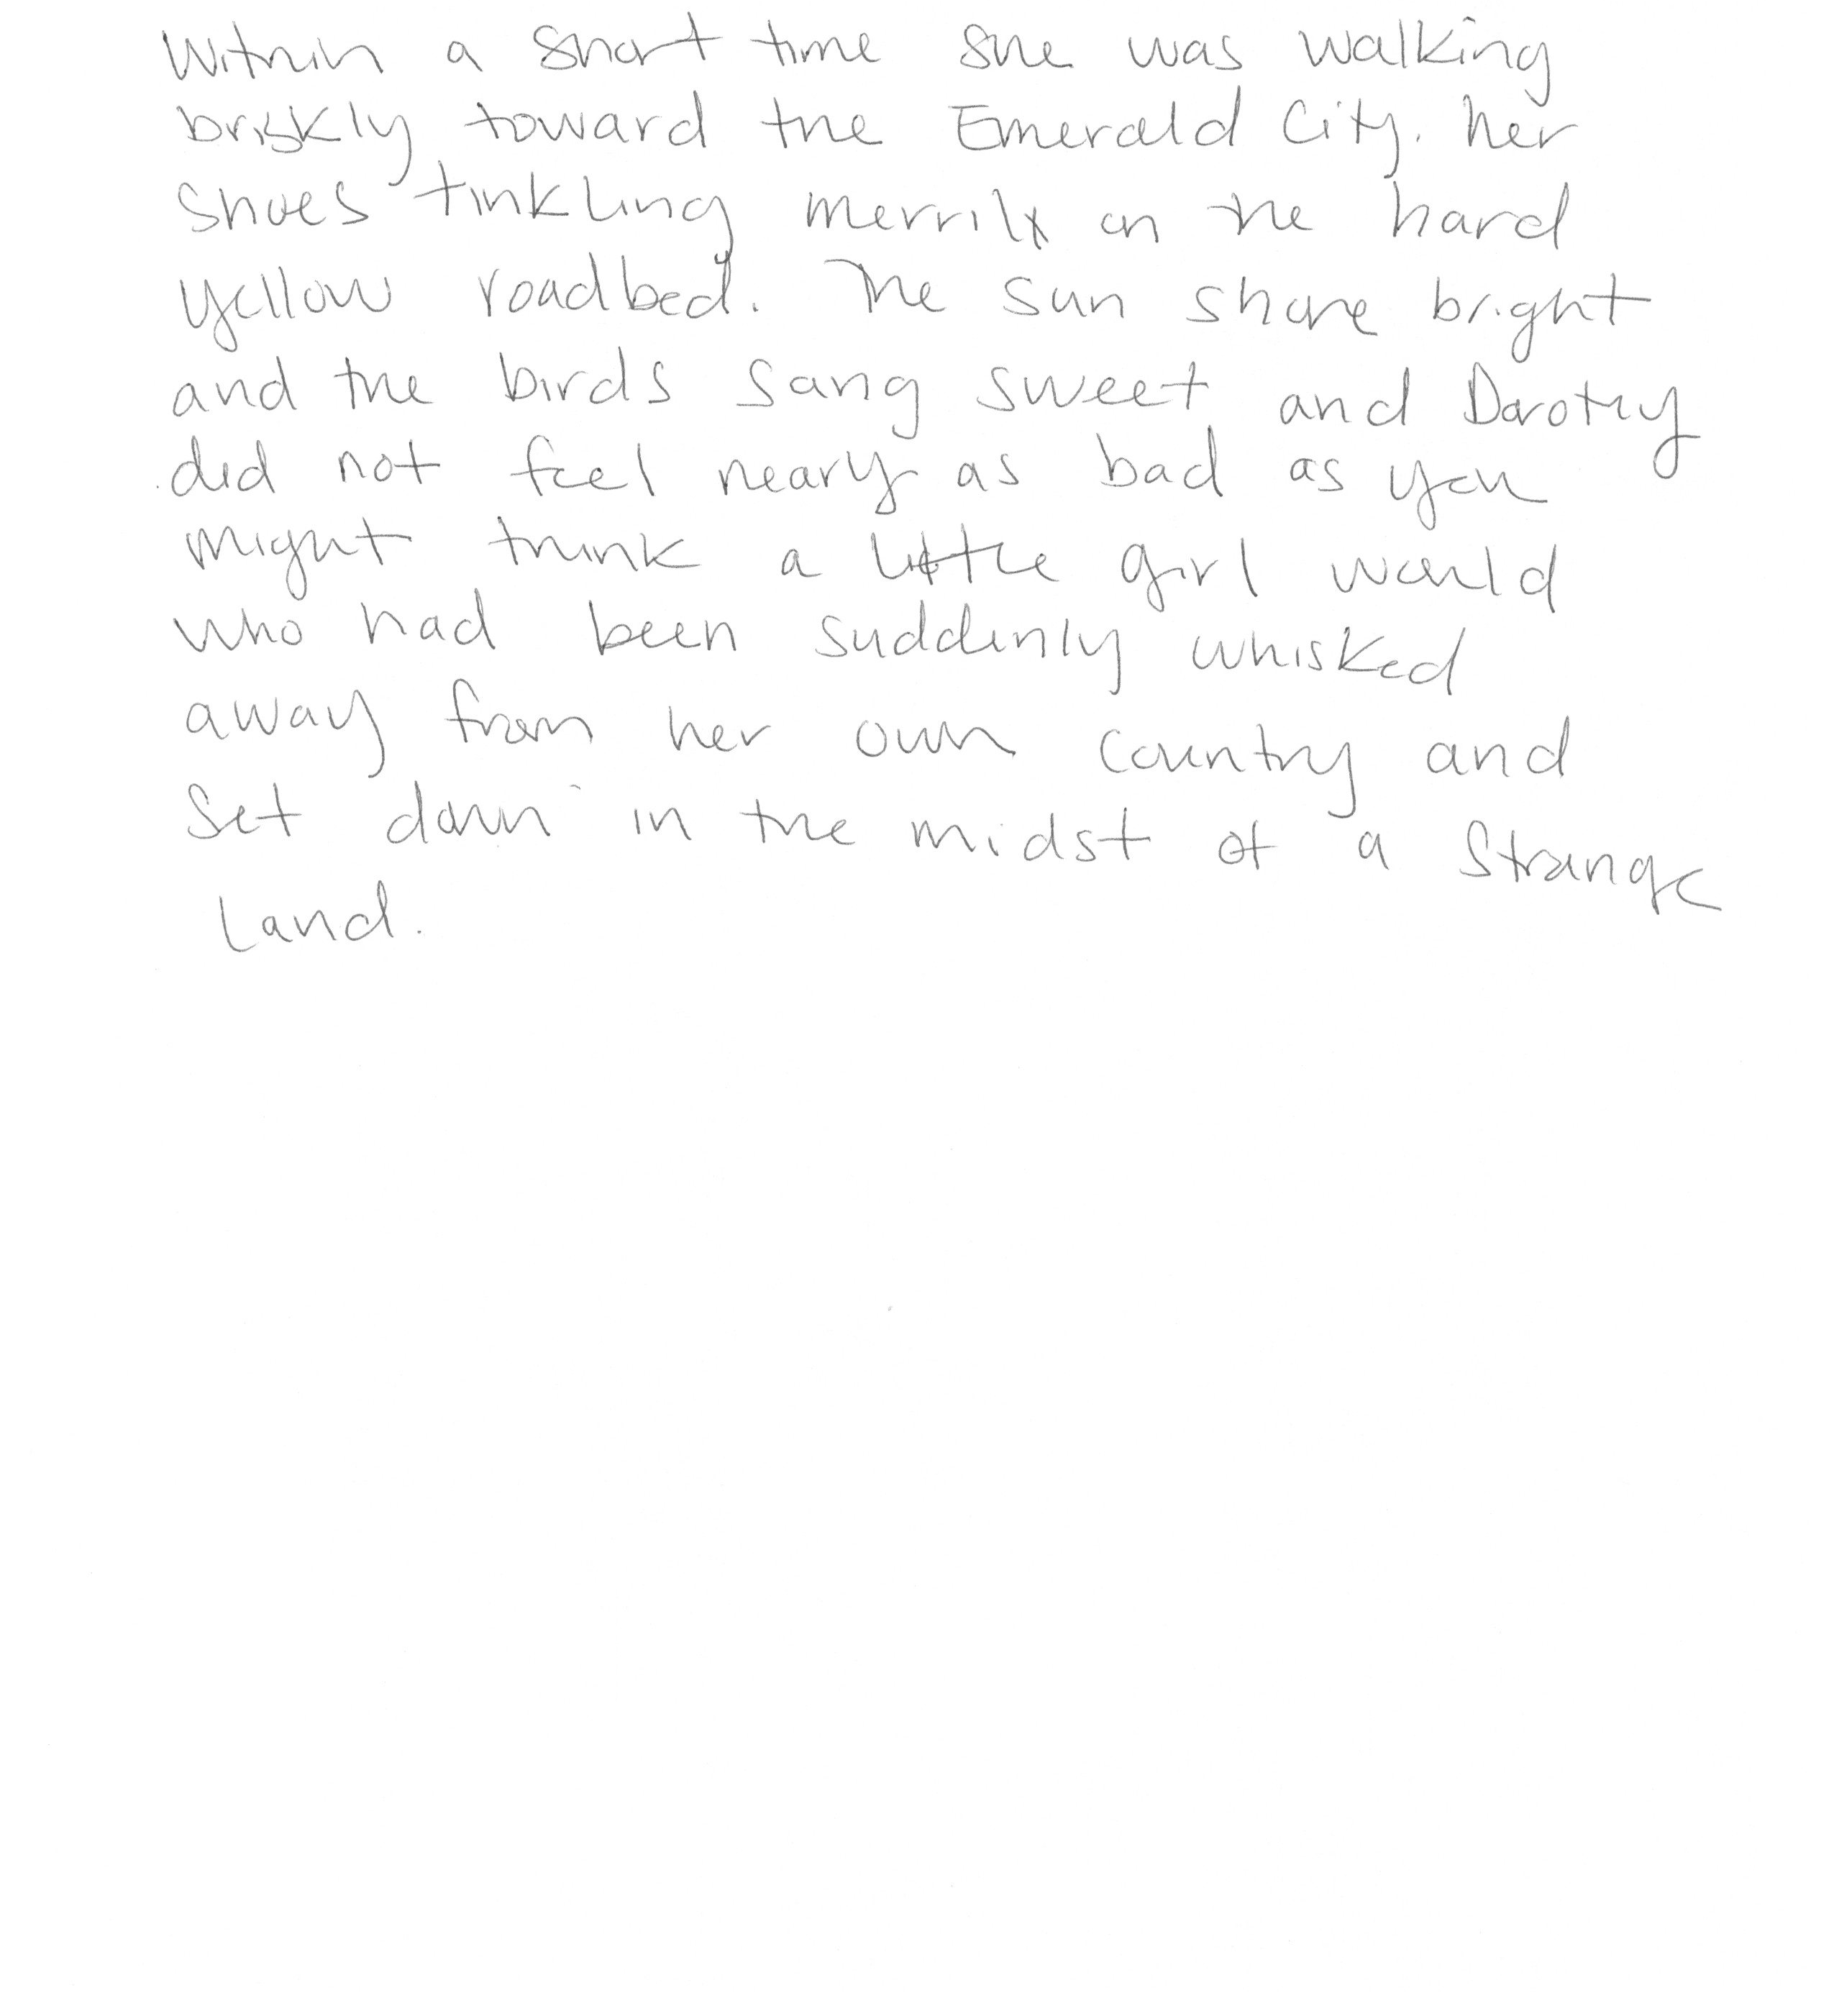 Within a short time she was walking
briskly toward the Emerald City. her
shoes tinkling merrily on the hard
yellow roadbed. The sun shone bright
and the birds sang sweet and Dorothy
did not feel neary as bad as you
might think a little girl would
who had been suddenly whisked
away from her own country and
set down in the midst of a strange
land.